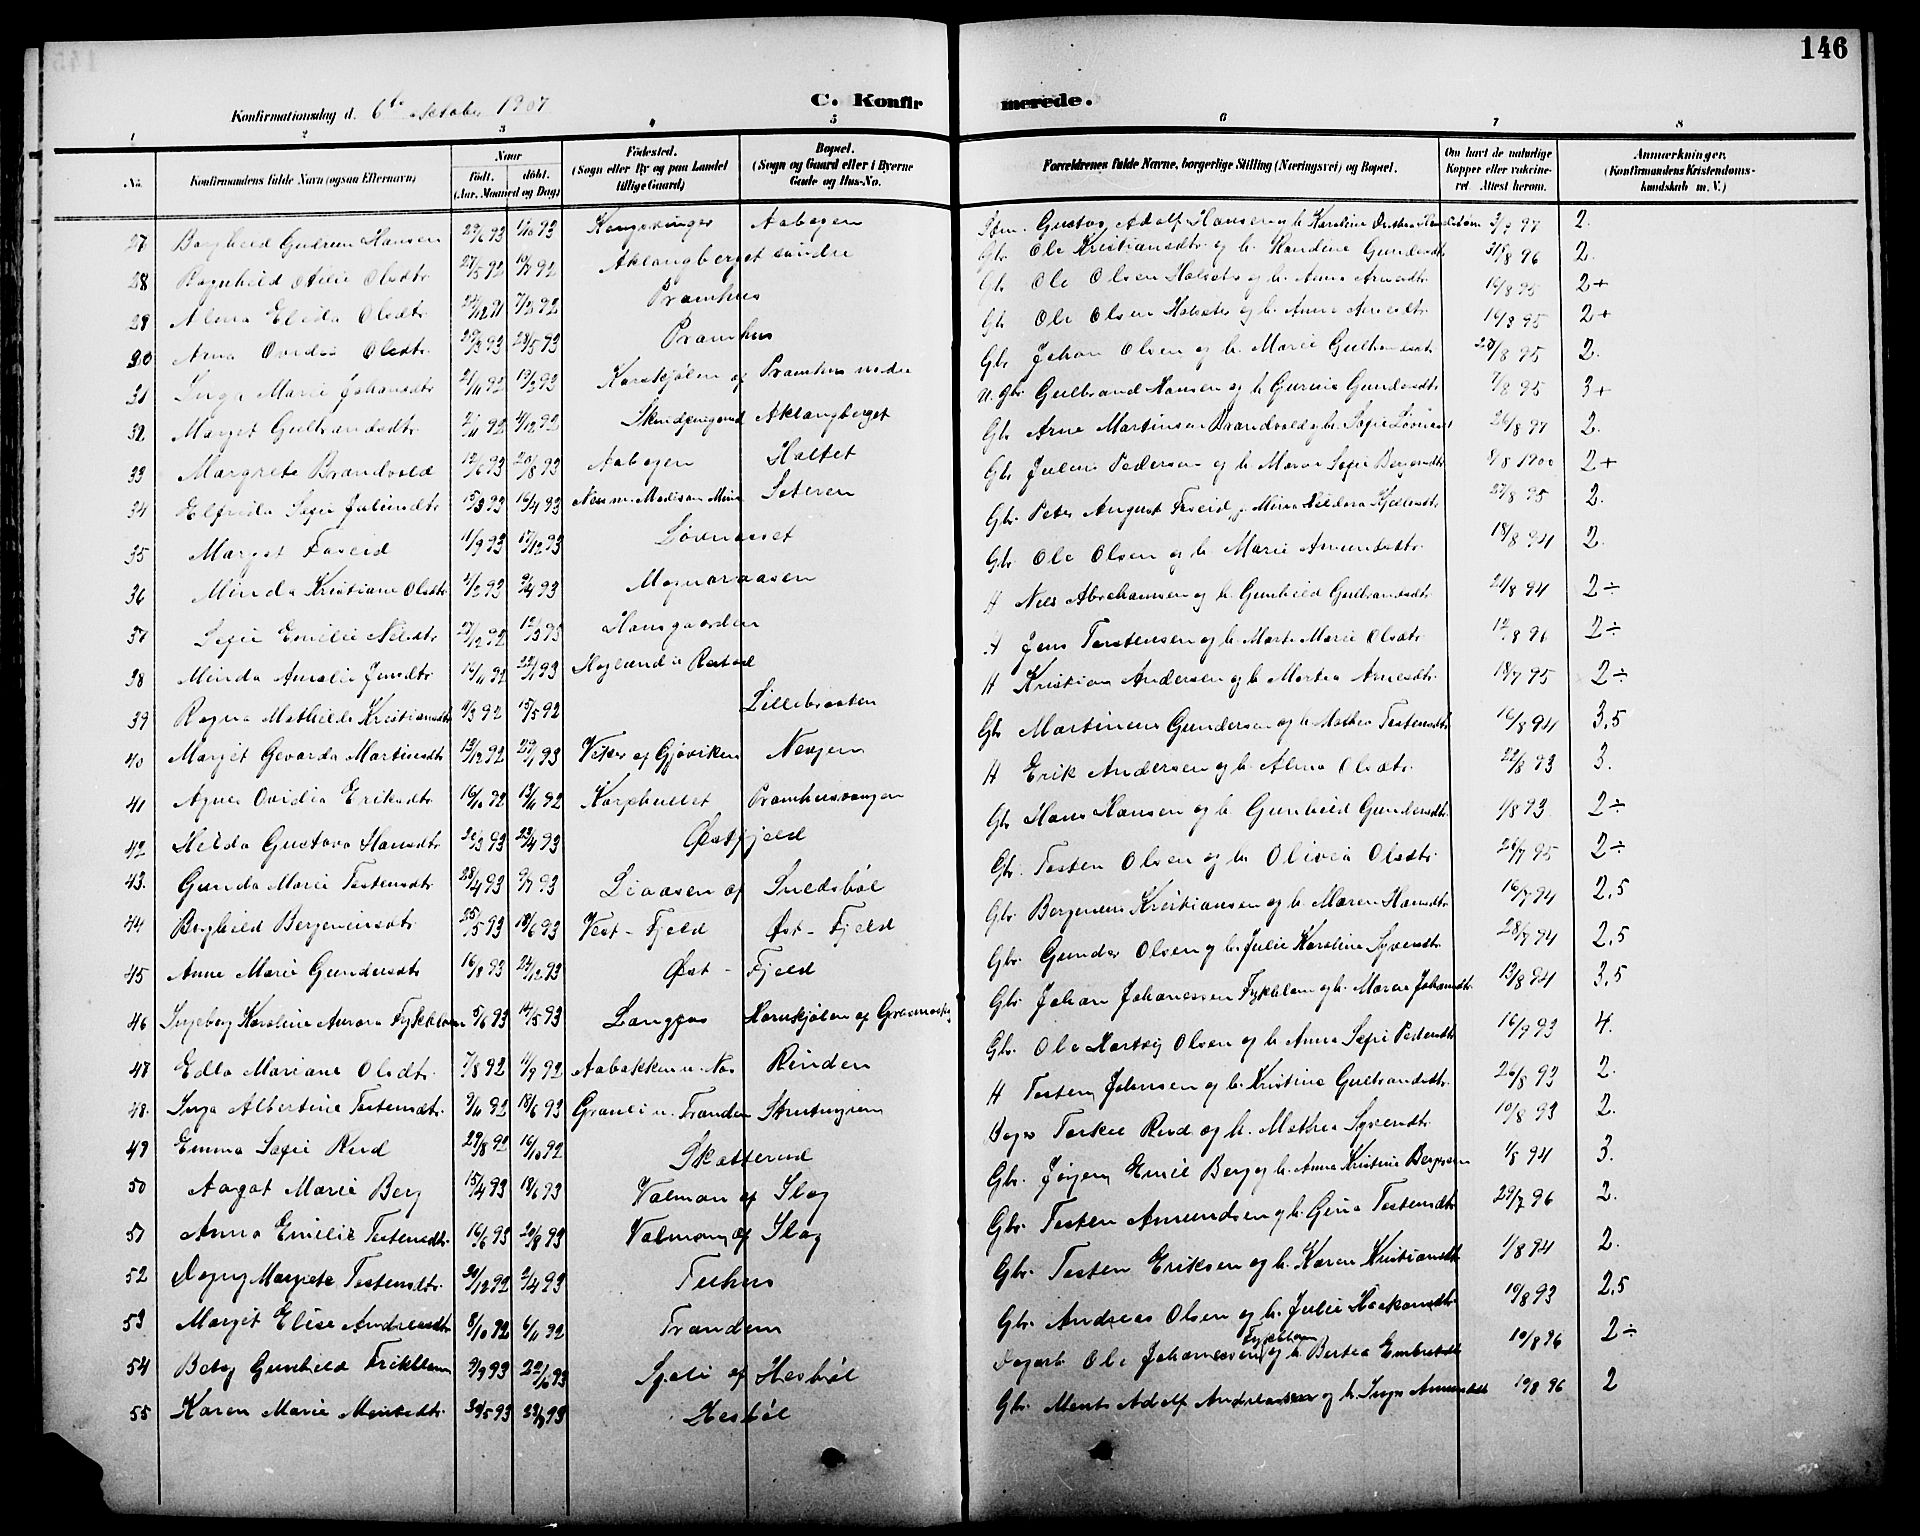 146
C. Konfirmerede.
Konfirmationsdag d. 6te October 1907
1 2 3 4 5 6 7 8
No. Konfirmandens fulde Navn (ogsaa Efternavn) Naar Født. døbt. (Aar, Maaned og Dag) Fødested. (Sogn eller By og paa Landet tillige Gaard) Bopæl. (Sogn og Gaard eller i Byerne Gade og Hus-No. Forældrenes fulde Navne, borgerlige Stilling (Næringsvei) og Bopæl. Om havt de naturlige Kopper eller vaccineret. Attest herom. Anmærkninger. (Konfirmandens Kristendomskundskab m. V.)
27 Borghild Gudrun Hansen 29/6 93 1/10 93 Kongsvinger Aabogen Gustav Adolf Hansen og h. Karoline 3/9 97 2.
28 Ragnhild Olsdtr 27/5 92 92 Aklangberget søndre Gbr. Ole Kristiansdtr og h. Gundersdtr 31/8 96 2.
29 Alma Elida Olsdtr 7/2 92 Pramhus Gb Ole Olsen Holseter og h. Anna Arnesdtr 16/8 95 2+
30 Arna Ovidia Olsdtr 29/3 93 28/5 93 Pramhus Gb. Ole Olsen Holseter og h. Anna Arnesdtr 16/8 95 2+
31 Inga Marie Johansdtr 21/11 92 19/3 93 Karskjølen af Pramhus nedre Gb. Johan Olsen og h. Marie Gulbrandsdtr 20/8 95 2.
32 Margit Gulbrandsdtr 2/11 92 4/12 92 Aklangberget Gbr. Gulbrand Hansen og h. Gurine Gundersdtr 7/8 95 3+
33 Margrete Brandvold 12/6 93 20/8 93 Aabogen Holtet Gb. Arne Martinsen Brandvold og h. Sofie 26/8 97 2.
34 Elfrida Sofie Juliusdtr 15/3 93 16/4 93 Seteren Gb. Julius Pedersen og h. Maria Sofie Bergersdtr 8/8 1900 2+
35 Margit Foseid 11/9 93 17/12 93 Løvnaset Gb. Peter August Foseid 27/8 95 2.
36 Minda Kristiane Olsdtr 4/2 93 9/4 93 Magnoraasen Gb. Ole Olsen og h. Marie Amundsdtr 18/8 94 2.
37 Sofie Emilie Nilsdtr 27/12 92 12/3 93 Hansgaarden H Nils Abrahamsen og h. Gunhild Gulbrandsdtr 21/8 94 2÷
38 Minda Amalie Jensdtr 14/11 92 22/1 93 Jens Torstensen og h. Marte Marie Olsdtr 12/8 96 2÷
39 Ragna Mathilde Kristiansdtr 11/3 92 15/5 92 Lillebraaten H Kristian Andersen og h. Martea Arnesdtr 18/7 95 2÷
40 Margit Gevarda Martinsdtr 13/12 92 29/1 93 af Gjøviken Nevjen Gb Martinius Gundersen og h. Mathea Tostensdtr 16/8 94 3,5
41 Agnes Ovidia Eriksdtr 16/10 92 13/11 92 Korphullet Pramhusvangen H Erik Andersen og h. Alma Olsdtr. 22/8 93 3.
42 Hilda Gustava Hansdtr 93 23/4 93 Østfjeld Gb Hans Hansen og h. Gunhild Gundersdtr 1/8 93 2÷
43. Gunda Marie Tostensdtr 28/4 93 9/7 93 Liaasen af Snedsbøl Gb. Tosten Olsen og h. Olivia Olsdtr. 26/7 95 2÷
44 Borghild Bergeriusdtr 25/5 93 18/6 93 Vest-Fjeld Øst-Fjeld Gb Bergerius Kristiansen og h. Maren Hansdtr 16/7 94 2,5
45 Anne Marie Gundersdtr 16/8 93 24/12 93 Øst-Fjeld Gb. Gunder Olsen og h. Julie Karoline Syversdtr. 28/7 94 2,5
46 Ingeborg Karoline Aurora Fykblom 5/6 93 14/5 93 Langnæs Hornskjølen af Græsmo Gb. Johan Johanessen Fykblom og h. Maria Johansdtr 13/8 94 3,5
47 Edla Mariane Olsdtr. 7/8 92 11/9 92 Aabakken u. Nor Rinden Gb. Ole Hartvig Olsen og h. Anna Sofie Pedersdtr 16/7 93 4.
48. Inga Albertine Tostensdtr 9/4 93 18/6 93 Granli u. Tranden H Tosten Johnsen og h. Kristine Gulbrandsdtr. 26/8 93 2.
49 Emma Sofie Rud 29/8 92 16/10 92 Skatterud Torkel Rud og h. Mathea Syversdtr. 10/8 93 2.
50 Aagot Marie Berg 15/4 93 18/6 93 Valmon af Slog Gb. Jørgen Emil Berg og h. Anna Kristine Bergersen 1/8 94 3.
51 Anna Emilie Tostensdtr. 16/6 93 20/8 93 Valmon af Slog Gb. Tosten Amundsen og h. Gina Tostensdtr 29/7 96 2.
52 Dagny Margrete Tostensdtr. 30/12 92 2/4 93 Tuhus Gb. Tosten Eriksen og h. Karen Kristiansdtr 1/8 94 2.
53 Margit Elise Andreasdtr 8/10 92 6/11 92 Trandem Gb. Andreas Olsen og h. Julie Haakonsdtr 10/8 93 2,5
54 Betsy Gunhild Frikblom 9/9 93 22/10 93 Sjøli af Hesbøl Dagarb. Ole Johanessen Fykblom og h. Bertea Embretsdtr 10/8 96 2÷
55 Karen Marie Mentsdtr. 30/5 93 93 Hesbøl Gb. Ments Adolf Andreassen og h. Inga Amundsdtr 19/8 96 2